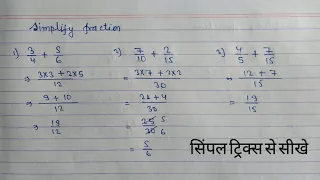 Simplify fraction
1) 3/4 + 5/6
⇒ 3×3 + 2×5 / 12
⇒ 9 + 10 / 12
⇒ 19/12
2) 7/10 + 2/15
= 3×7 + 2×2 / 30
= 21 + 4 / 30
= 25/30 5 6
= 5/6
3) 4/5 + 7/15
= 12 + 7 / 15
= 19/15
सिंपल ट्रिक्स से सीखे